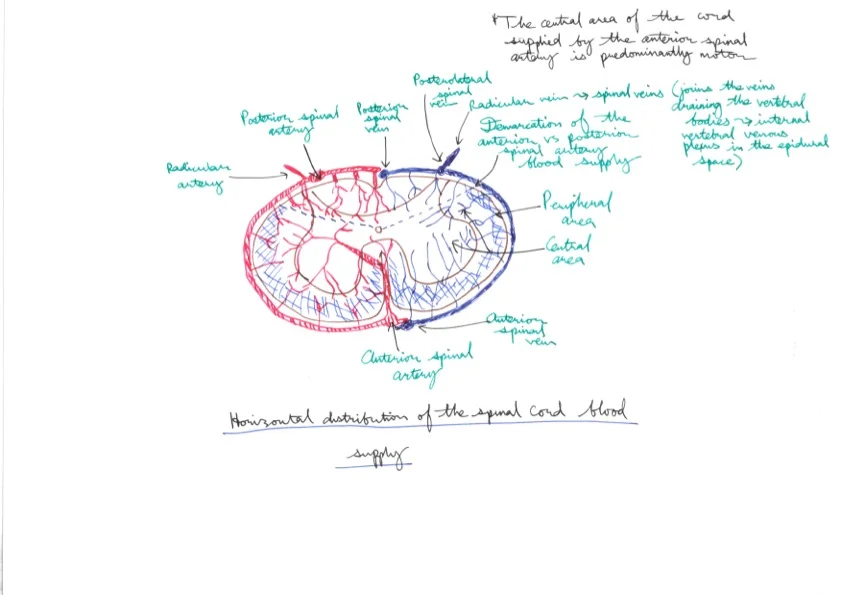 *The central area of the cord
supplied by the anterior spinal
artery is predominantly motor
Posterolateral
spinal
vein
Radicular vein → spinal veins (joins the veins
draining the vertebral
bodies → internal
vertebral venous
plexus in the epidural
space)
Posterior spinal
artery
Posterior
spinal
vein
Demarcation of the
anterior vs posterior
spinal artery
blood supply
Radicular
artery
Peripheral
area
Central
area
Anterior
spinal
vein
Anterior spinal
artery
Horizontal distribution of the spinal cord blood
supply